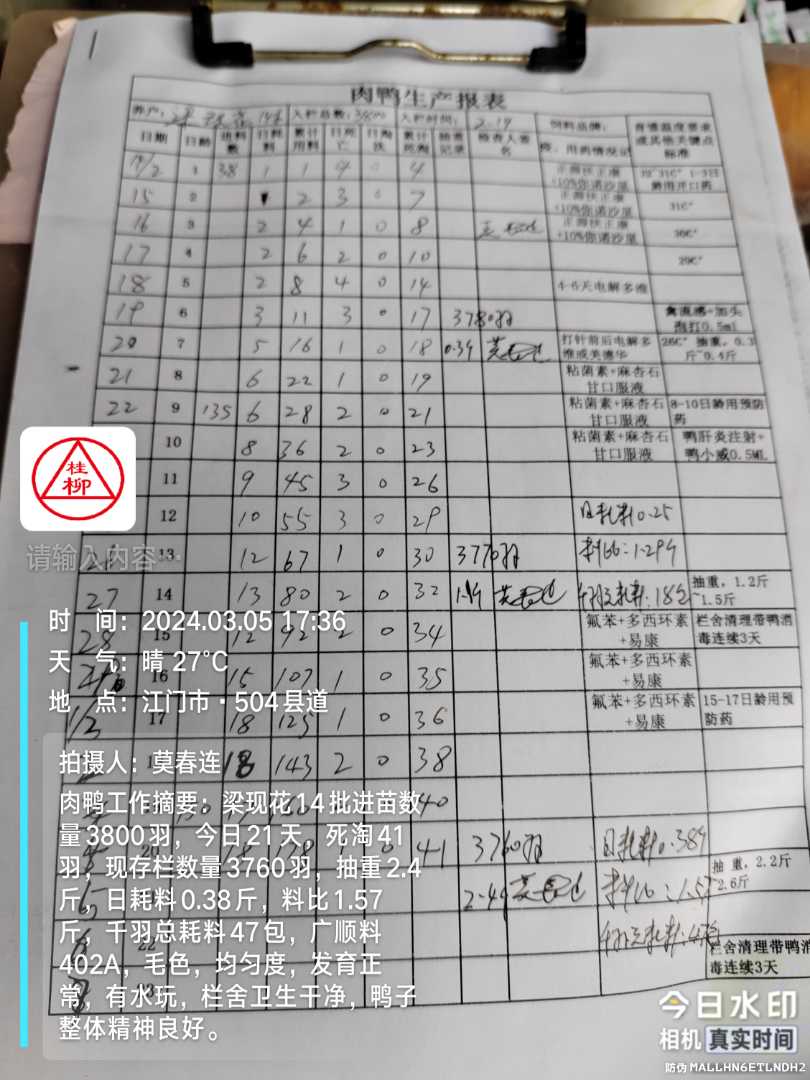 肉鸭生产报表
养户: 梁现花 14批 入栏总数: 3800 入栏时间: 2.14 饲料品牌: 育雏温度要求或其他关键点标准
日期 日龄 进料数 日耗料 累计用料 日死亡 日淘汰 累计死淘 检查人签名
14/2 1 38 1 1 4 0 4 +10%你诺沙星 1-3日龄用开口药
15 2 1 2 3 0 7 +10%你诺沙星 31C°
16 3 2 4 1 0 8 +10%你诺沙星 30C°
17 4 2 6 2 0 10 29C°
18 5 2 8 4 0 14 4-6天电解多维
19 6 3 11 3 0 17 3780羽 禽流感+加头孢打0.5ml
20 7 5 16 1 0 18 0.39 莫春连 打针前后电解多维或美德华 26C° 抽重，0.3斤~0.4斤
21 8 6 22 1 0 19 粘菌素+麻杏石甘口服液
22 9 135 6 28 2 0 21 粘菌素+麻杏石甘口服液 8-10日龄用预防药
10 8 36 2 0 23 粘菌素+麻杏石甘口服液 鸭肝炎注射+鸭小威0.5ML
11 9 45 3 0 26
12 10 55 3 0 29 日耗料0.25
13 12 67 1 0 30 3770羽 料比:1.29斤
27 14 13 80 2 0 32 莫春连 千羽总耗料:18包 抽重，1.2斤~1.5斤
28 15 12 92 2 0 34 氟苯+多西环素+易康 栏舍清理带鸭消毒连续3天
16 15 107 1 0 35 氟苯+多西环素+易康
1/3 17 18 125 1 0 36 氟苯+多西环素+易康 15-17日龄用预防药
2 18 143 2 0 38
40
41 3760羽 日耗料0.38斤
2.4斤 莫春连 料比:1.57 抽重，2.2斤~2.6斤
22 千羽总耗料:47包 栏舍清理带鸭消毒连续3天
桂柳
请输入内容…
时 间: 2024.03.05 17:36
天 气: 晴 27℃
地 点: 江门市·504县道
拍摄人: 莫春连
肉鸭工作摘要: 梁现花14批进苗数
量3800羽，今日21天，死淘41
羽，现存栏数量3760羽，抽重2.4
斤，日耗料0.38斤，料比1.57
斤，千羽总耗料47包，广顺料
402A，毛色，均匀度，发育正
常，有水玩，栏舍卫生干净，鸭子
整体精神良好。
今日水印
相机 真实时间
防伪 MALLHN6ETLNDH2